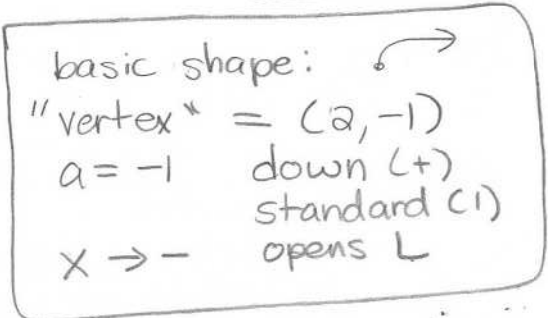 basic shape:
"vertex" = (2,-1)
a = -1 down (+)
standard (1)
x → - opens L